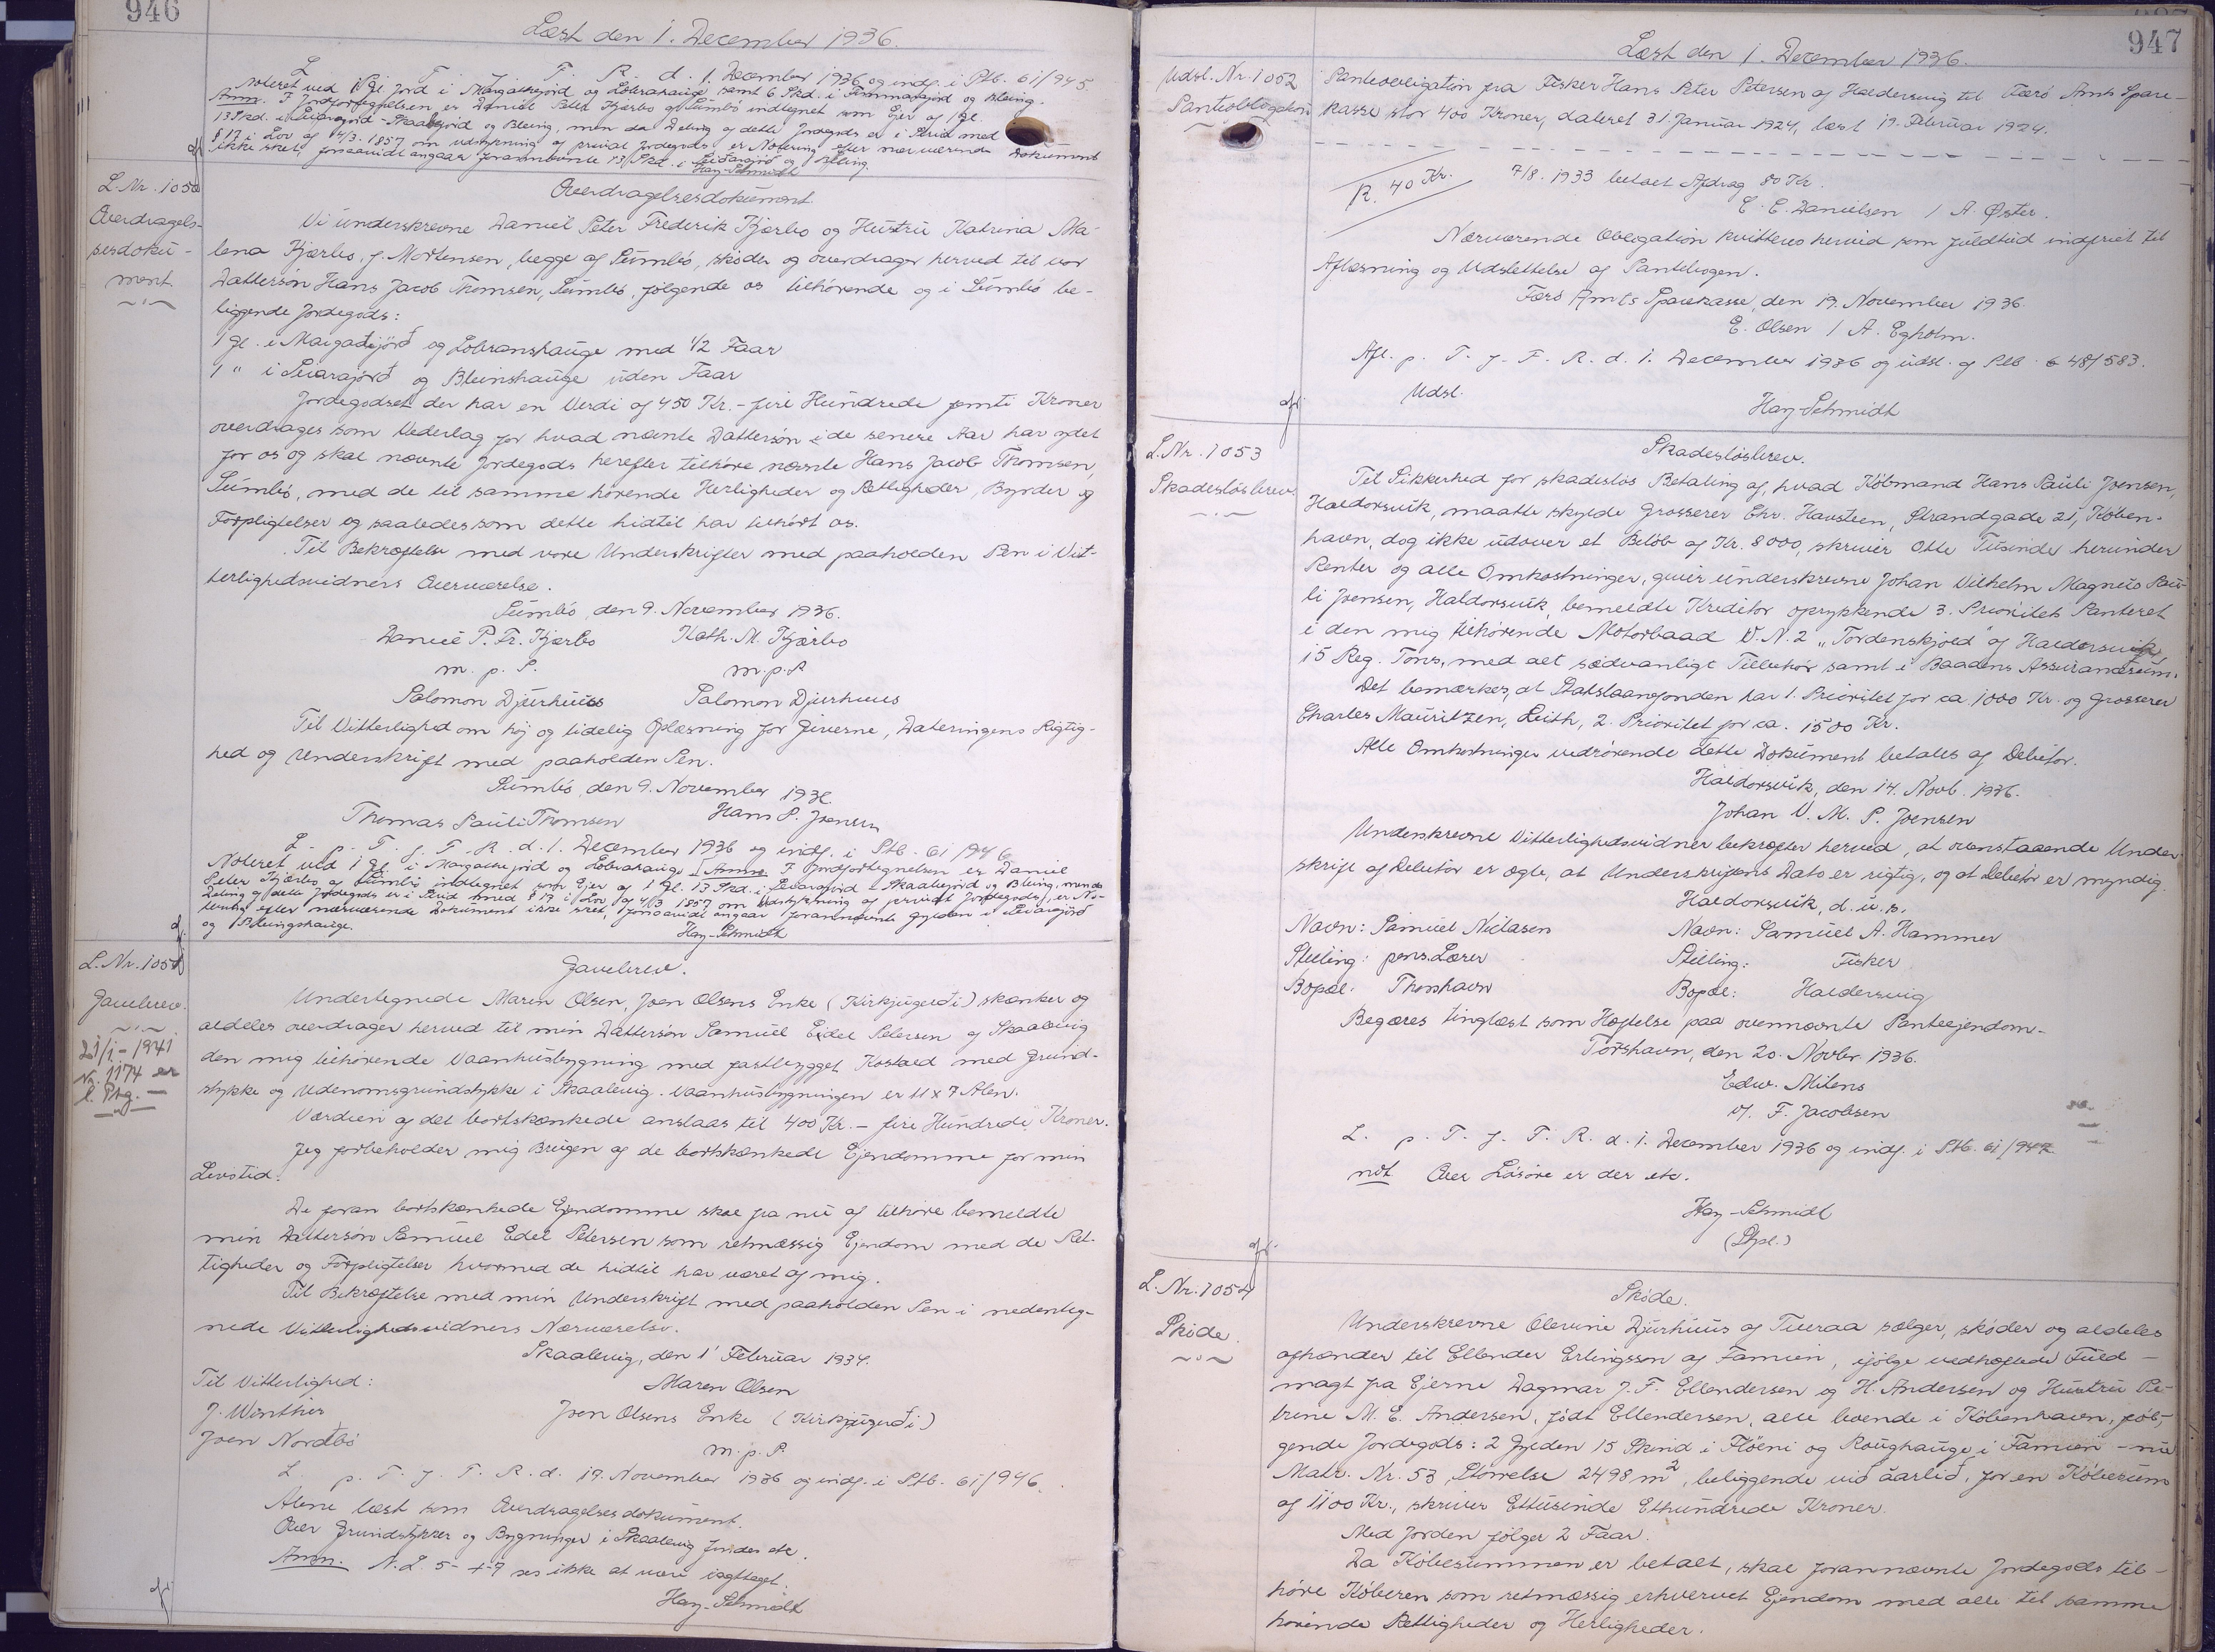 946
Læst den 1. December 1936.
L. p. T. f. T. R. d. 1. December 1936 og indf. i Ptb. 61/945.
Noteret ved 1 Gl. Jord i Margathejørd og Lobrahauge samt 6 Skd. i Timmansjørd og Bleing.
Anm. I Jordfortegnelsen er Daniel Peter Kjærbo af Sumbö indtegnet som Ejer af 1 Gl.
13 Skd. i Svarajord - Skaalejord og Bleing, men da Deling af dette Jordegods er i Strid med
§ 17 i Lov af 4/3. 1857 om Udstykning af privat Jordegods er Notering efter nærværende Dokument
ikke sket, forsaavidt angaar forannævnte 13 Skd. i Svarajørd og Bleing.
Hay-Schmidt
L. Nr. 1050
Overdragels-
sesdoku-
ment.
Overdragelsesdokument.
Vi underskrevne Daniel Peter Frederik Kjærbo og Hustru Katrina Ma-
lena Kjærbo, f. Mortensen, begge af Sumbö, skøder og overdrager herved til vor
Dattersøn Hans Jacob Thomsen, Sumbö, følgende os tilhørende og i Sumbö be-
liggende Jordegods:
1 Gl. i Margathejørð og Lobranshauge med 1/2 Faar
1 " i Svarajørð og Bleinshauge uden Faar
Jordegodset der har en Verdi af 450 Kr. - fire Hundrede femti Kroner
overdrages som Vederlag for hvad nævnte Dattersøn i de senere Aar har ydet
for os og skal nævnte Jordegods herefter tilhøre nævnte Hans Jacob Thomsen,
Sumbö, med de til samme hørende Herligheder og Rettigheder, Byrder og
Forpligtelser og saaledes som dette hidtil har tilhørt os.
Til Bekræftelse med vore Underskrifter med paaholden Pen i Vit-
terlighedsvidners Overværelse.
Sumbö, den 9. November 1936.
Daniel P. Fr. Kjærbo Kath. M. Kjærbo
m. p. P. m. p. P
Salomon Djurhuus Salomon Djurhuus
Til Vitterlighed om høj og tidelig Oplæsning for Giverne, Dateringens Rigtig-
hed og Underskrift med paaholden Pen.
Sumbö, den 9. November 1936.
Thomas Pauli Thomsen Hans P. Joensen
L. p. T. f. T. R. d. 1. December 1936 og indf. i Ptb. 61/946
Noteret ved 1 Gl. i Margathejørd og Lobrahauge. Anm. I Jordfortegnelsen er Daniel
Peter Kjærbo af Sumbö indtegnet som Ejer af 1 Gl. 13 Skd. i Svarajord - Skaalejord og Bleing, men da
Deling af dette Jordegods er i Strid med § 17 i Lov af 4/3 1857 om Udstykning af privat Jordegods, er No-
tering efter nærværende Dokument ikke sket, forsaavidt angaar forannævnte Gylden i Svarajørd
og Bleingshauge.
Hay-Schmidt
L. Nr. 1051
Gavebrev.
21/1 - 1941
Nr. 1174 er
l. Ptg. —
Gavebrev.
Undertegnede Maren Olsen, Joen Olsens Enke (Kirkjugerði) skænker og
aldeles overdrager herved til min Dattersøn Samuel Edel Petersen af Skaalevig
den mig tilhørende Vaanhusbygning med fastbygget Kostald med Grund-
stykke og Udenomsgrundstykke i Skaalevig. Vaanhusbygningen er 11 x 7 Alen.
Værdien af det bortskænkede anslaas til 400 Kr. - fire Hundrede Kroner.
Jeg forbeholder mig Brugen af de bortskænkede Ejendomme for min
Livstid.
De foran bortskænkede Ejendomme skal fra nu af tilhøre bemeldte
min Dattersøn Samuel Edel Petersen som retmæssig Ejendom med de Ret-
tigheder og Forpligtelser hvormed de hidtil har været af mig.
Til Bekræftelse med min Underskrift med paaholden Pen i nedenteg-
nede Vitterlighedsvidners Nærværelse.
Skaalevig, den 1' Februar 1934.
Til Vitterlighed: Maren Olsen
J. Winther Joen Olsens Enke (Kirkjugerði)
Joen Nordbö m. p. P.
L. p. T. f. T. R. d. 19. November 1936 og indf. i Ptb. 61/946.
Alene læst som Overdragelsesdokument.
Over Grundstykker og Bygninger i Skaalevig findes etc.
Anm. N. L. 5 - 4 - 7 ses ikke at være iagttaget.
Hay-Schmidt
947
Læst den 1. December 1936.
Udsl. Nr. 1052
Pantobligation
Panteobligation fra Fisker Hans Peter Petersen af Haldersvig til Færø Amts Spare-
kasse stor 400 Kroner, dateret 31. Januar 1924, læst 19. Februar 1924.
R. 40 Kr. 7/8. 1933 betalt Afdrag 80 Kr.
C. C. Danielsen / A. Øster.
Nærværende Obligation kvitteres herved som fuldtud indfriet til
Aflæsning og Udslettelse af Pantebogen.
Færø Amts Sparekasse, den 19. November 1936.
E. Olsen / A. Egholm.
Afl. p. T. f. T. R. d. 1. December 1936 og udsl. af Ptb. 48/583.
Udsl. Hay-Schmidt
L. Nr. 1053
Skadesløsbrev.
Skadesløsbrev.
Til Sikkerhed for skadesløs Betaling af, hvad Købmand Hans Pauli Joensen,
Haldorsvik, maatte skylde Grosserer Chr. Haustein, Strandgade 21, Køben-
havn, dog ikke udover et Beløb af Kr. 8000, skriver Otte Tusinde herunder
Renter og alle Omkostninger, giver underskrevne Johan Vilhelm Magnus Pau-
li Joensen, Haldorsvik, bemeldte Kreditor oprykkende 3. Prioritets Panteret
i den mig tilhørende Motorbaad V. N. 2 „Tordenskjold" af Haldorsvik,
15 Reg. Tons, med alt sædvanligt Tilbehør samt i Baadens Assurancesum.
Det bemærkes, at Statslaanefonden har 1. Prioritet for ca. 1000 Kr. og Grosserer
Charles Mauritzen, Leith, 2. Prioritet for ca. 1500 Kr.
Alle Omkostninger vedrørende dette Dokument betales af Debitor.
Haldorsvik, den 14. Novb. 1936.
Johan V. M. P. Joensen
Underskrevne Vitterlighedsvidner bekræfter herved, at ovenstaaende Under-
skrift af Debitor er ægte, at Underskriftens Dato er rigtig, og at Debitor er myndig.
Haldorsvik, d. u. s.
Navn: Samuel Niclasen Navn: Samuel A. Hammer
Stilling: pens. Lærer Stilling: Fisker
Bopæl: Thorshavn Bopæl: Haldersvig
Begæres tinglæst som Hæftelse paa ovennævnte Panteejendom.
Torshavn, den 20. Novbr. 1936.
Edw. Mitens
v/. F. Jacobsen
L. p. T. f. T. R. d. 1. December 1936 og indf. i Ptb. 61/947.
not Over Løsøre er der etc.
Hay-Schmidt
(Stpl.)
L. Nr. 1054
Skøde.
Skøde.
Underskrevne Olevine Djurhuus af Tveraa sælger, skøder og aldeles
afhænder til Ellender Erlingsson af Famien, ifølge vedhæftede Fuld-
magt fra Ejerne Dagmar J. F. Ellendersen og H. Andersen og Hustru Pe-
trine M. E. Andersen, født Ellendersen, alle boende i København, føl-
gende Jordegods: 2 Gylden 15 Skind i Flöeni og Roughauge i Famien - nu
Matr. Nr. 53, Størrelse 2498 m², beliggende við áarlið, for en Købesum
af 1100 Kr., skriver Ettusinde Ethundrede Kroner.
Med Jorden følger 2 Faar.
Da Købesummen er betalt, skal forannævnte Jordegods til-
høre Køberen som retmæssig erhvervet Ejendom med alle til samme
hørende Rettigheder og Herligheder.